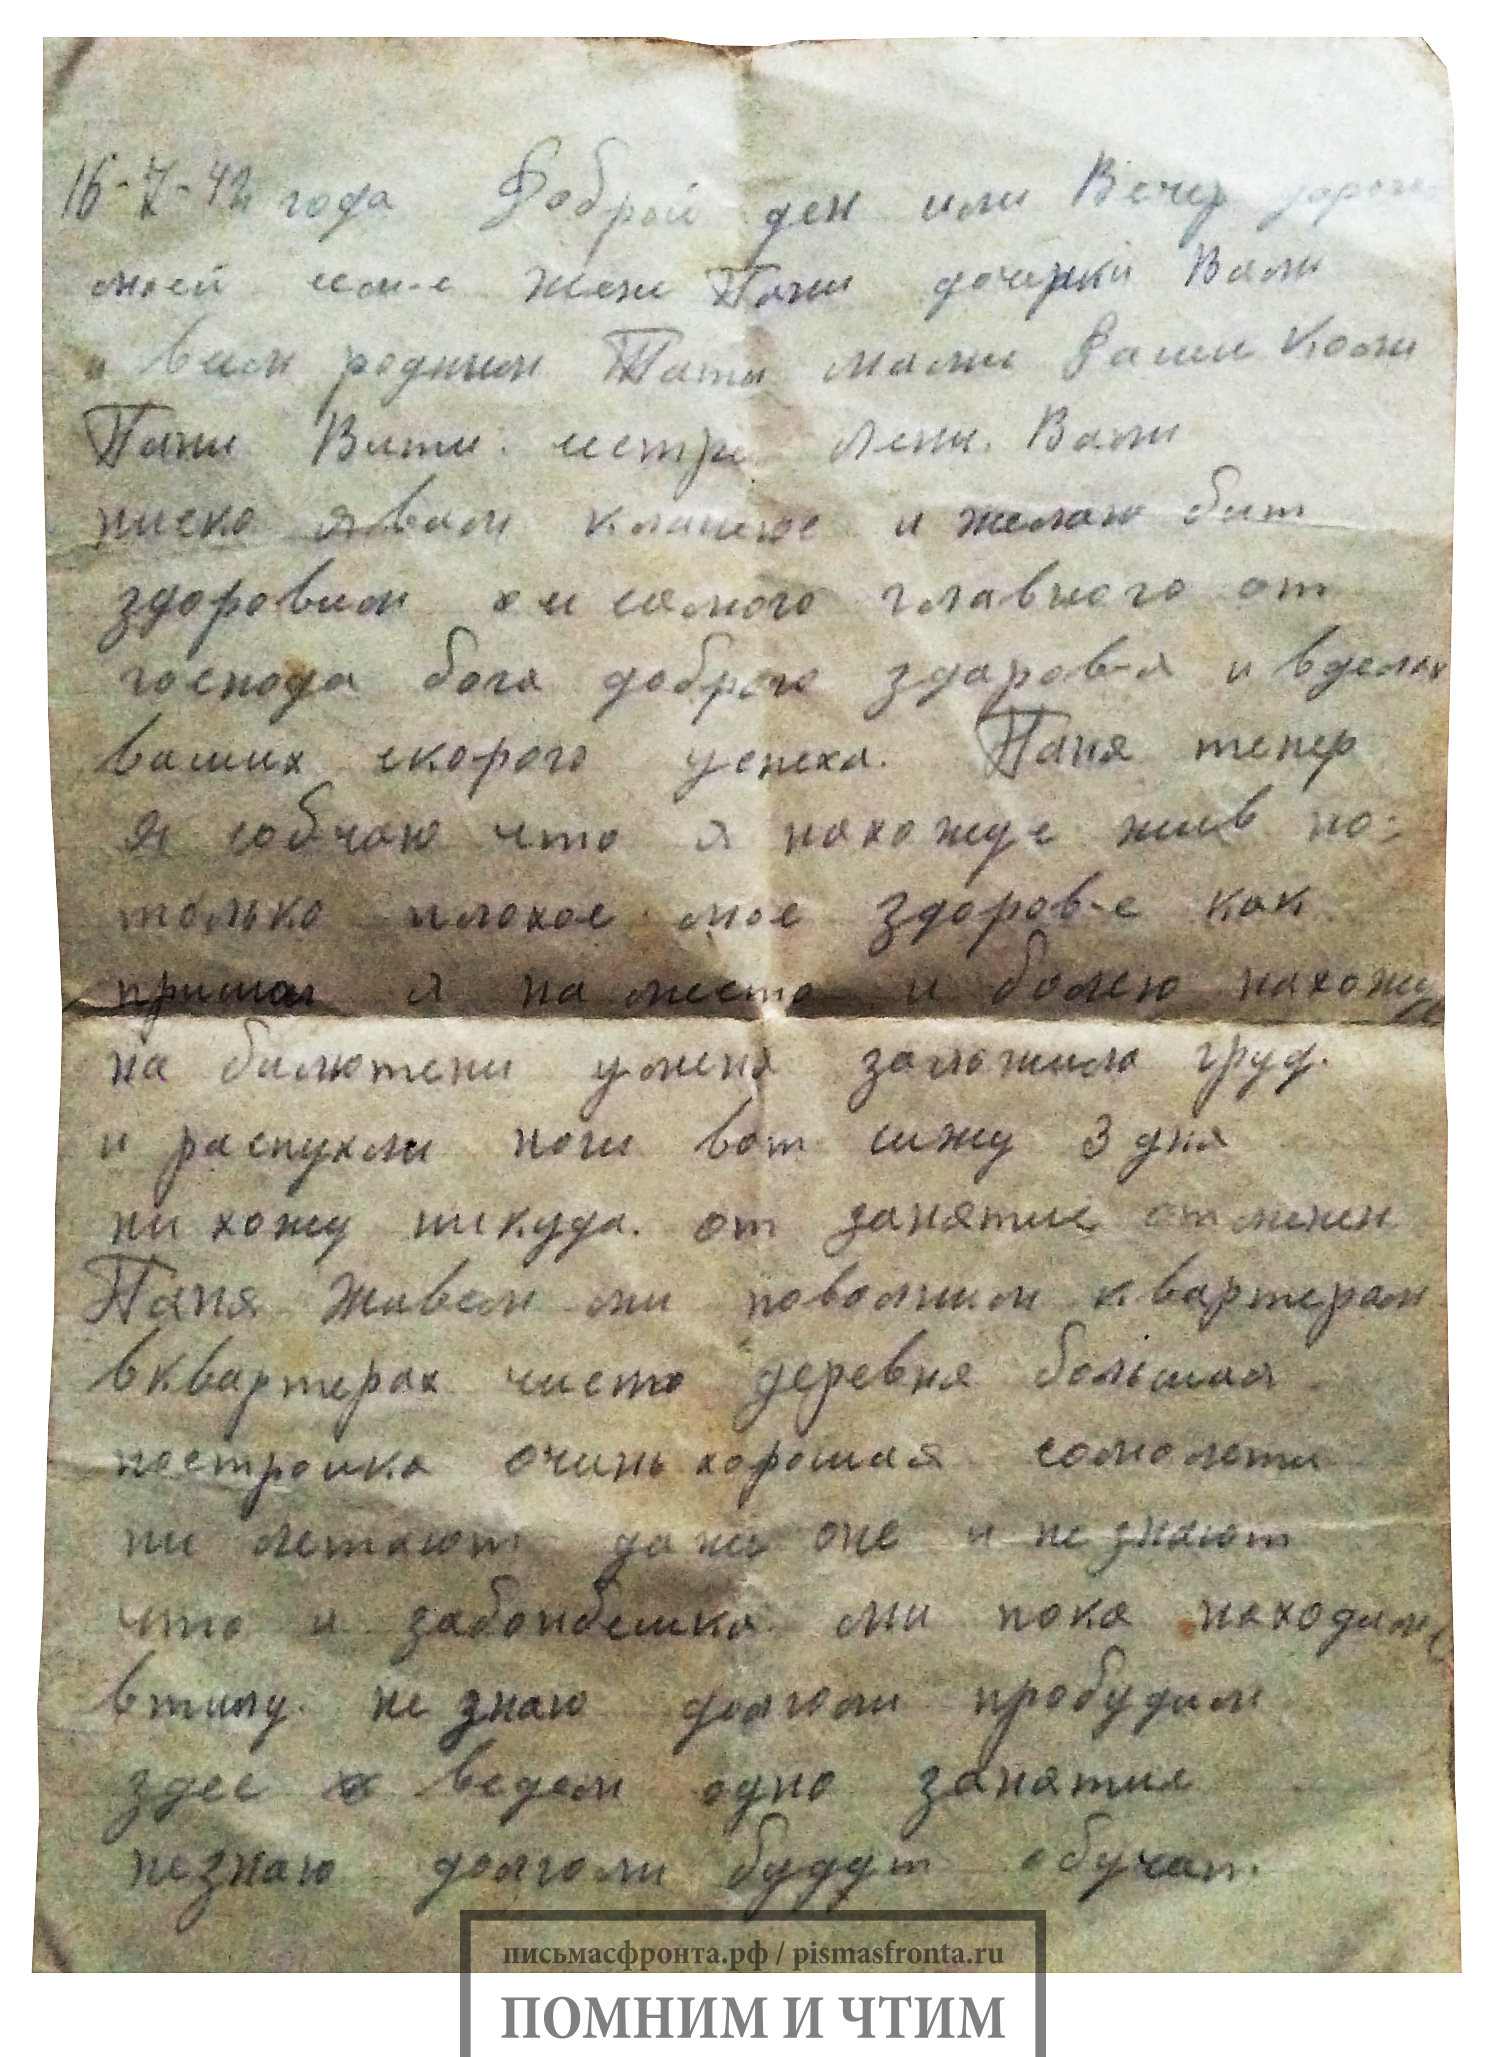 16-7-42 года Доброй ден или Вечер дорого
моей сем-е жене Пани дочерки Вали
и всем родным Тяти мами Раши Коли
Пани Вити: сестре Лени. Вани
ниско я вам кланеюс и желаю бит
здоровим и самого главного от
господа бога доброго здаров-я и вделах
ваших скорого успеха. Паня тепер
Я собчаю что я нахожус жив но:
только плохое мое здоров-е как
пришол я на место и болею нахожу
на билютени уменя заложило груд.
и распухли ноги вот сижу 3 дня
ни хожу никуда. от занятие отменен
Паня Живем ми повольним квартерам
вквартерах чисто деревня большая
построика очинь хорошая сомолети
ни летают даже оне и не знают
что и забонбешка ми пока находимс
втилу. не знаю долголи пробудим
здес ведем одно занятие
незнаю долголи будут обучат.
письмасфронта.рф / pismasfronta.ru
ПОМНИМ И ЧТИМ